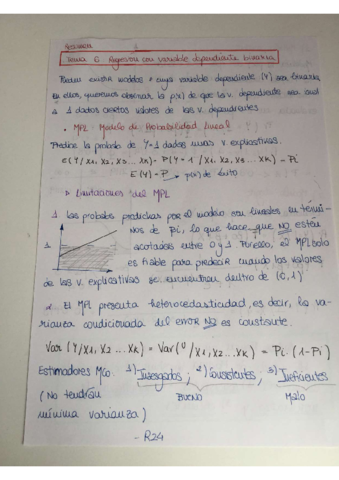 Tema 6 Regresión con variable dependiente binaria
Pueden existir modelos cuya variable dependiente (Y) sea binaria
en ellos, queremos observar la p(x) de que la v. dependiente sea igual
a 1 dados ciertos valores de las v. dependientes.
• MPL Modelo de Probabilidad Lineal
Predice la probab de Y=1 dados unas v. explicativas.
E(Y/X1, X2, X3 ... XK) = P(Y=1/X1, X2, X3 ... XK) = Pi
E(Y) = P → p(x) de éxito
▸ Limitaciones del MPL
1 Las probabs predichas por el modelo son lineales en térmi-
nos de pi, lo que hace que NO estén
1
acotadas entre 0 y 1 Por ello, el MPL solo
es fiable para predecir cuando los valores
de las v. explicativas se encuentran dentro de (0,1)
2. El MPL presenta heterocedasticidad, es decir, la va-
rianza condicionada del error NO es constante.
Var (Y/X1, X2 ... XK) = Var(U/X1, X2 ... XK) = Pi. (1-Pi)
Estimadores MCO. 1) Insesgados; 2) Consistentes; 3) Ineficientes
(No tendrán BUENO Malo
mínima varianza)
- R24